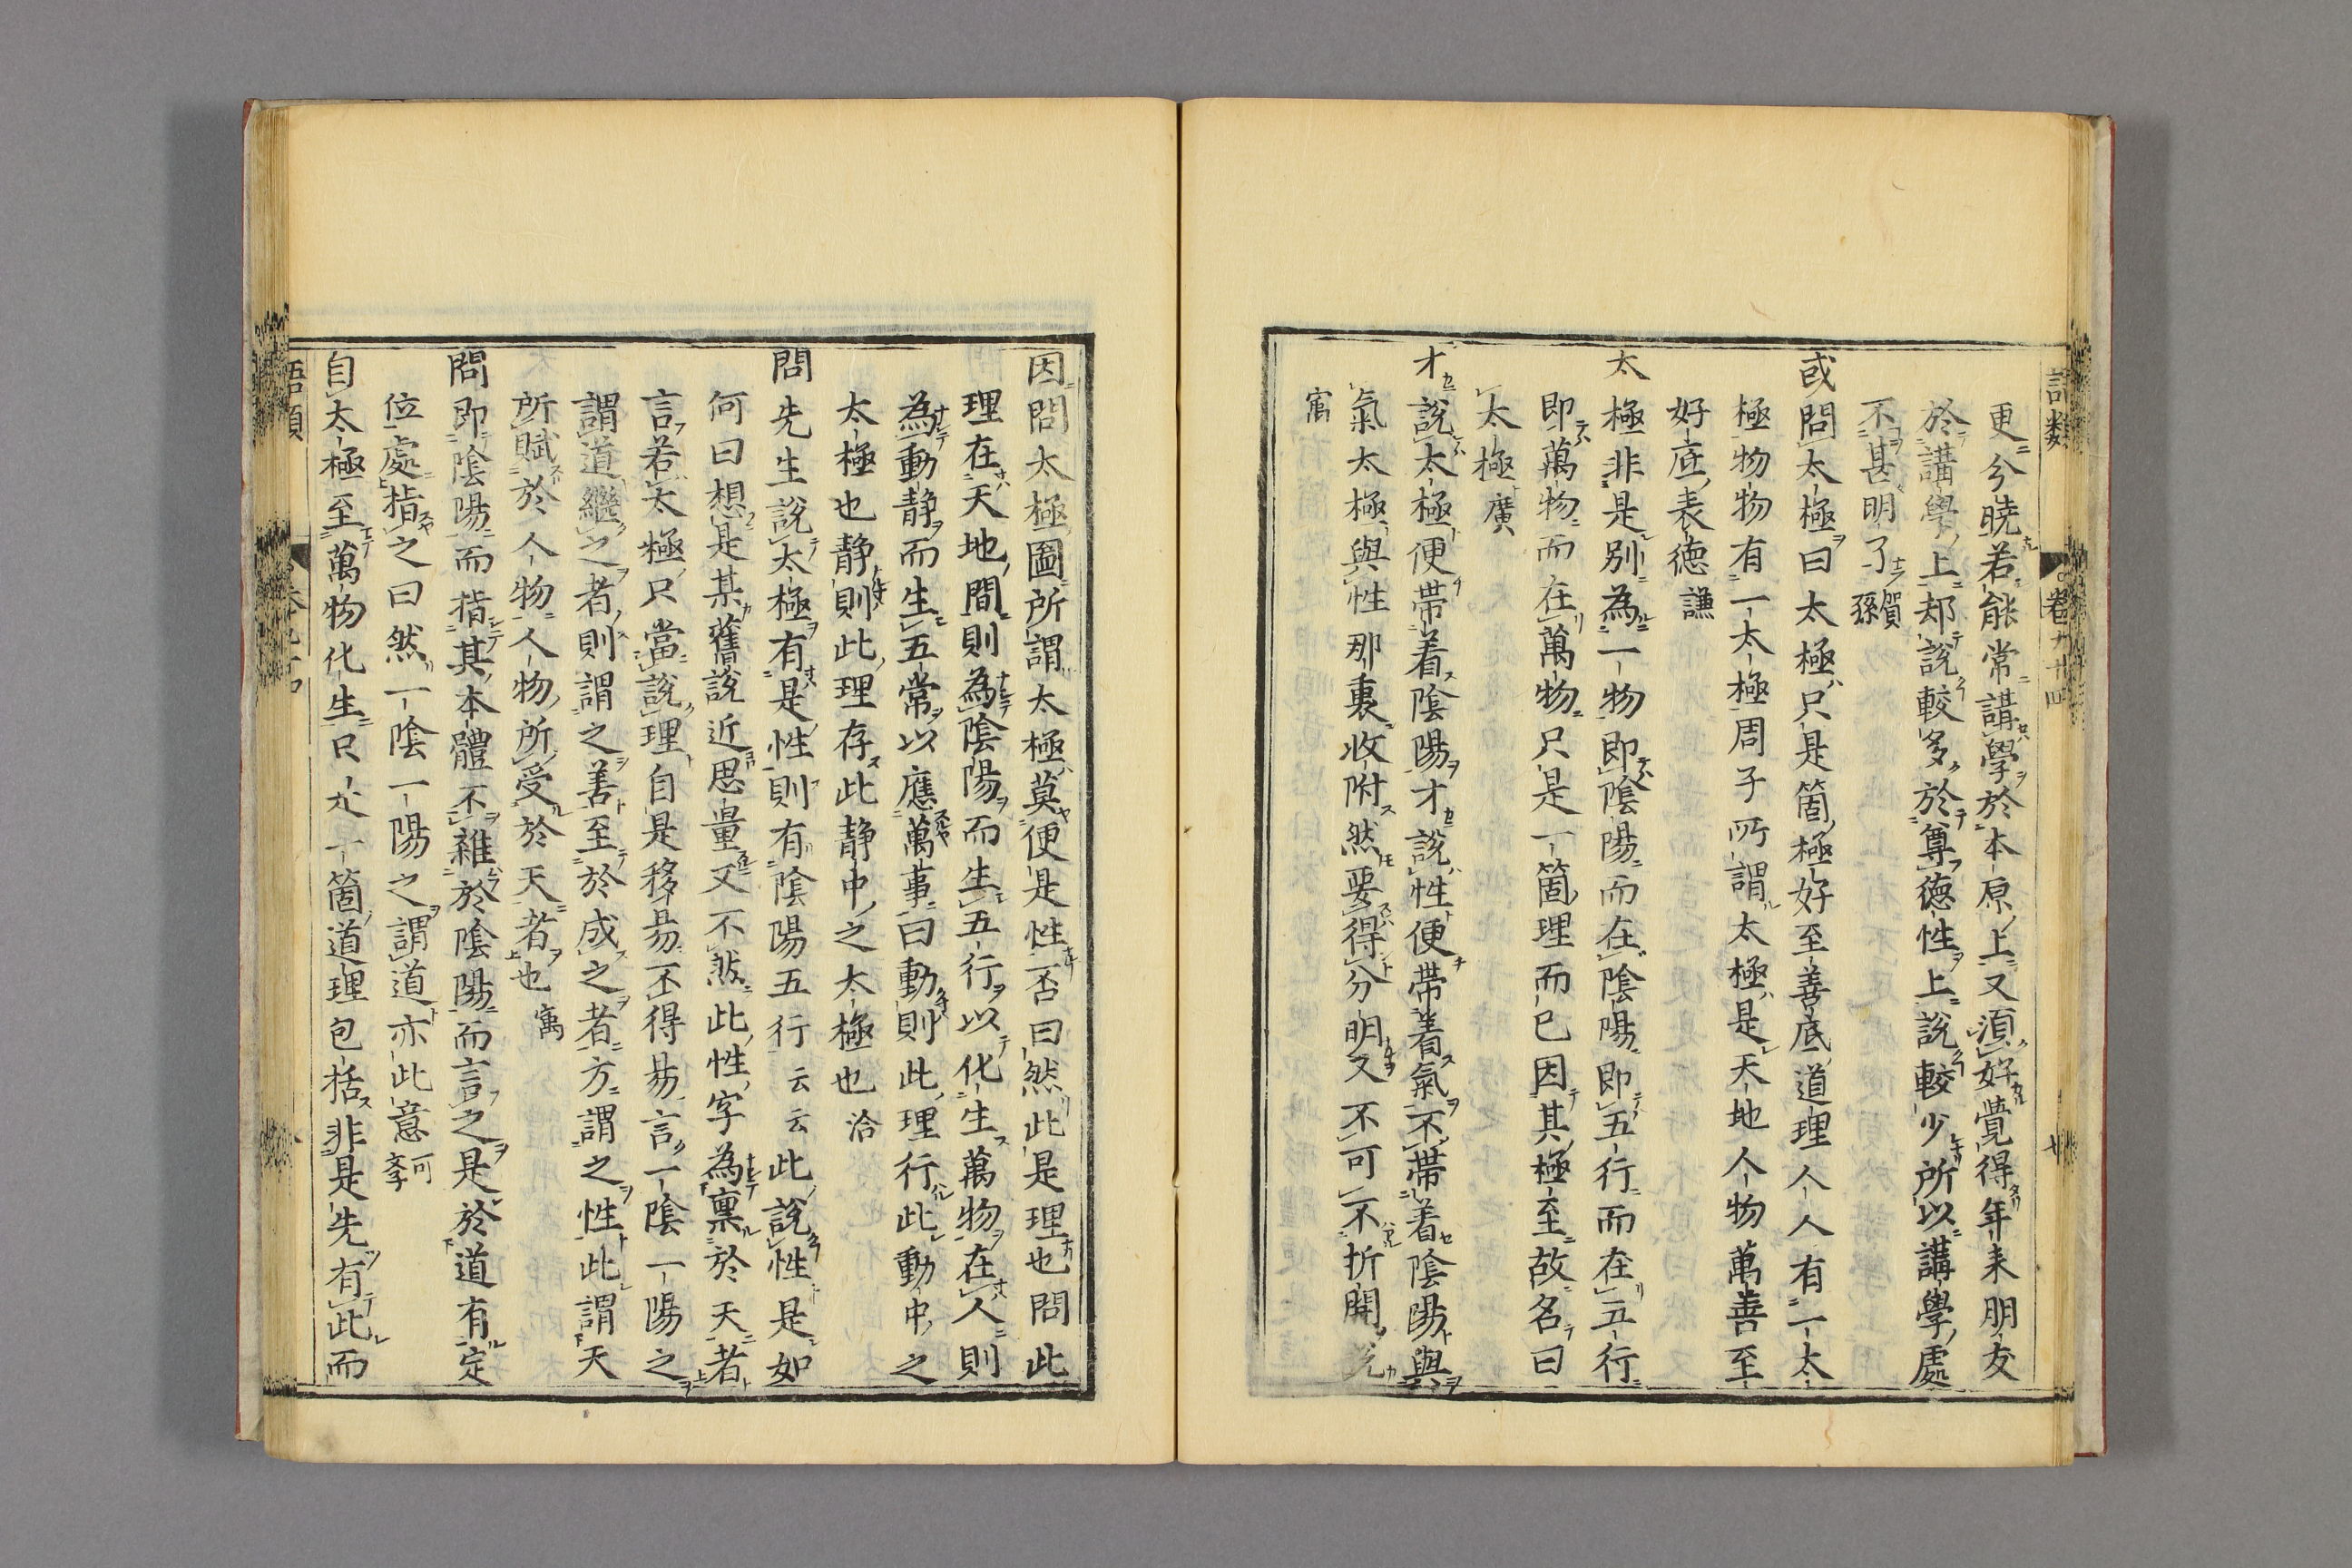 更分曉若能常講學於本原上又須好覺得年来朋友
於講學上却說較多於尊德性上說較少所以講學處
不甚明了賀孫
或問太極曰太極只是箇極好至善底道理人人有一太
極物物有一太極周子所謂太極是天地人物萬善至
好底表德謙
太極非是別為一物即陰陽而在陰陽即五行而在五行
即萬物而在萬物只是一箇理而已因其極至故名曰
太極廣
才說太極便帶着陰陽才說性便帶着氣不帶着陰陽與
氣太極與性那裏收附然要得分明又不可不折開說
㝢
卷九十四
因問太極圖所謂太極莫便是性否曰然此是理也問此
理在天地間則為陰陽而生五行以化生萬物在人則
為動静而生五常以應萬事曰動則此理行此動中之
太極也静則此理存此静中之太極也洽
問先生說太極有是性則有陰陽五行云云此說性是如
何曰想是某舊說近思量又不然此性字為稟於天者
言若太極只當說理自是移昜不得昜言一陰一陽之
謂道繼之者則謂之善至於成之者方謂之性此謂天
所賦於人物人物所受於天者也㝢
問即陰陽而指其本體不雜於陰陽而言之是於道有定
位處指之曰然一陰一陽之謂道亦此意可學
自太極至萬物化生只是一箇道理包括非是先有此而
語類